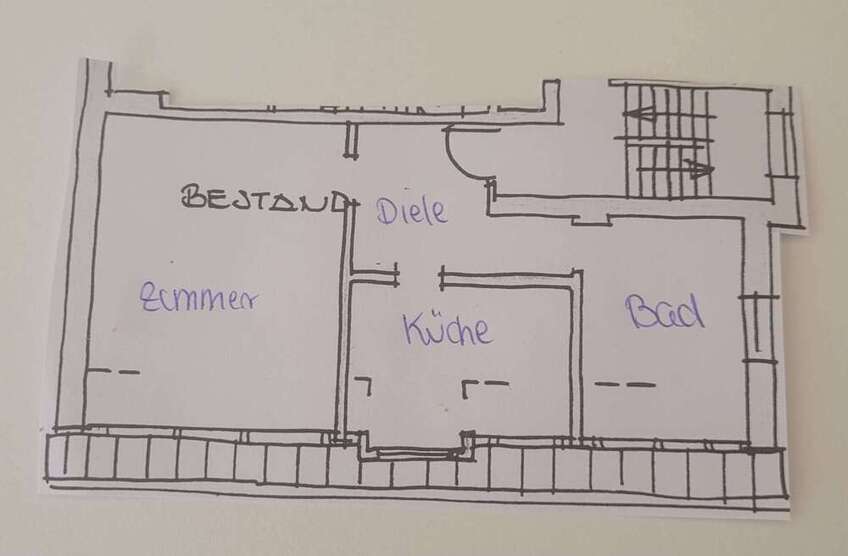 BESTAND
Diele
Zimmer
Küche
Bad